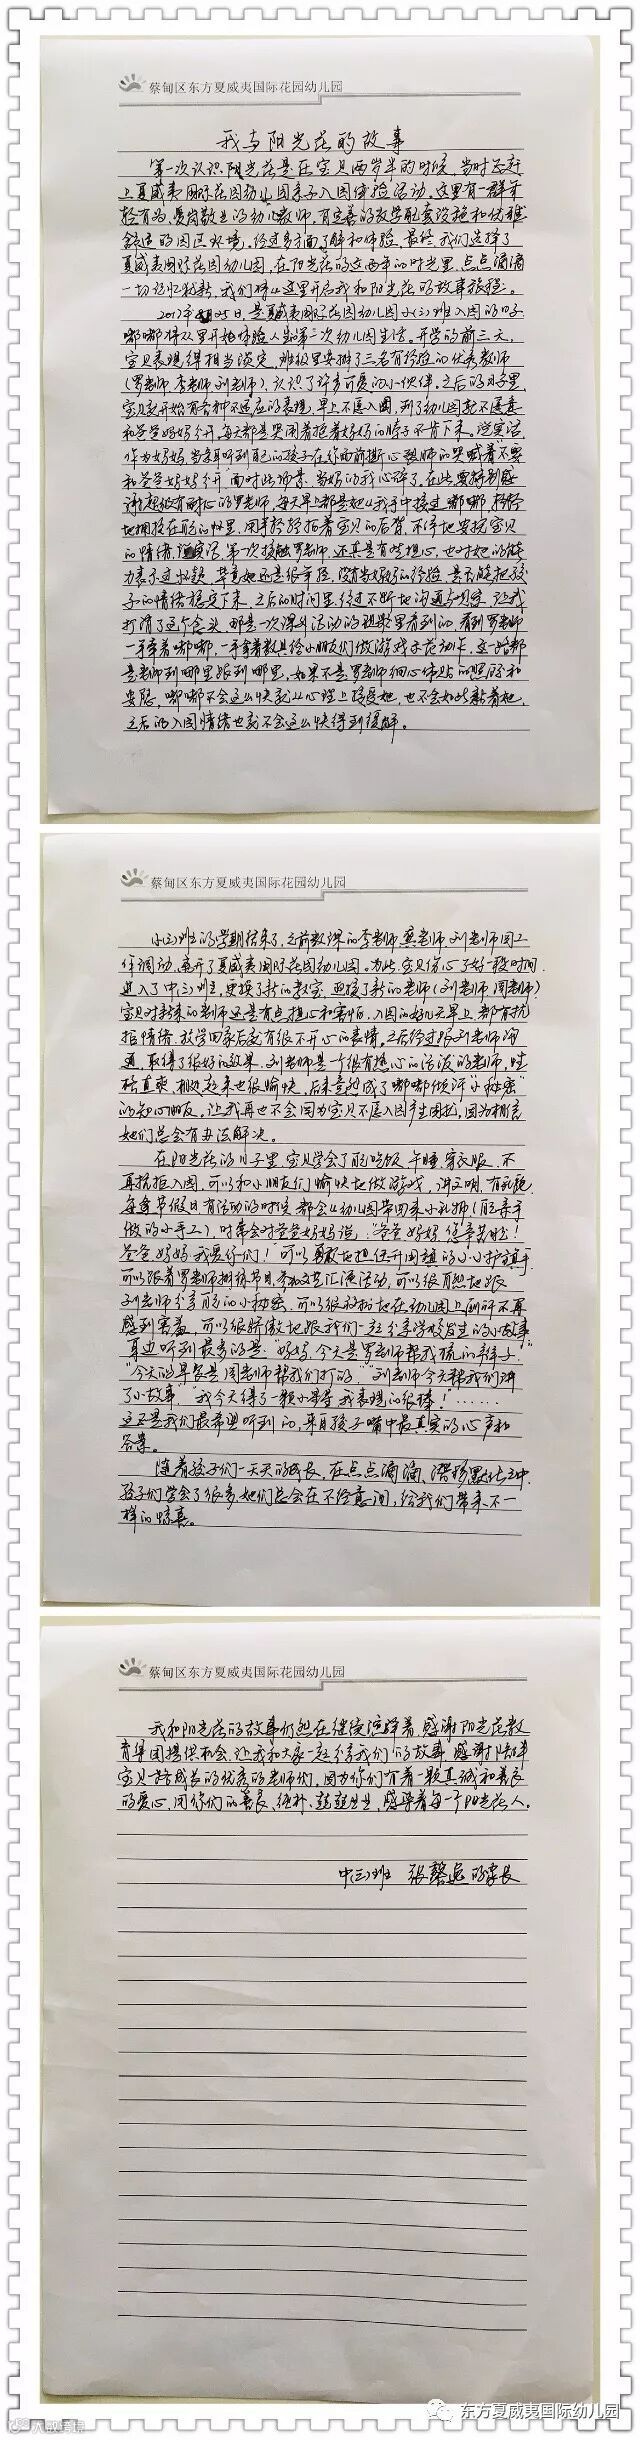 蔡甸区东方夏威夷国际花园幼儿园
我与阳光花的故事
第一次认识阳光花是在宝贝两岁半的时候,当时还赶
上夏威夷国际花园幼儿园亲子入园体验活动,这里有一群年
轻有为,爱岗敬业的幼儿教师,有完善的教学配套设施和优雅
舒适的园区环境,经过多方面了解和体验,最终我们选择了
夏威夷国际花园幼儿园,在阳光花的这两年的时光里,点点滴滴
一切记忆犹新,我们将从这里开启我和阳光花的故事旅程。
2017年8月25日,是夏威夷国际花园幼儿园小(三)班入园的日子
嘟嘟将从里开始体验人生第一次幼儿园生活。开学的前三天,
宝贝表现得相当淡定,班级里安排了三名有经验的优秀教师
(罗老师、李老师、刘老师),认识了许多可爱的小伙伴。之后的日子里,
宝贝就开始有各种不适应的表现,早上不愿入园,到了幼儿园就不愿意
和爸爸妈妈分开,每天都是哭闹着抱着妈妈的脖子不肯下来。说实话,
作为妈妈,当亲耳听到自己的孩子在你面前撕心裂肺的哭喊着"不要
和爸爸妈妈分开"面对此场景,当妈的我心碎了,在此要特别感
谢超级有耐心的罗老师,每天早上都是她从我手中接过嘟嘟,轻轻
地拥抱在自己的怀里,用手轻轻拍着宝贝的后背,不停地安抚宝贝
的情绪,说实话,第一次接触罗老师,还真是有些担心,也对她的能
力表示过怀疑,毕竟她还是很年轻,没有当妈妈的经验,是否能把孩
子的情绪稳定下来,之后的时间里,经过不断地沟通与观察,让我
打消了这个念头,那是一次课外活动的视频里看到的,看到罗老师
一手牵着嘟嘟,一手拿着教具给小朋友们做游戏示范动作,这一路都
是老师到哪里跟到哪里,如果不是罗老师细心体贴的照顾和
安慰,嘟嘟不会这么快就从心理上接受她,也不会如此黏着她,
之后的入园情绪也就不会这么快得到缓解。
蔡甸区东方夏威夷国际花园幼儿园
小(三)班的学期结束了,之前教课的李老师、龚老师、刘老师因工
作调动,离开了夏威夷国际花园幼儿园。为此,宝贝伤心了好一段时间.
进入了中(三)班,更换了新的教室,迎接了新的老师(刘老师、周老师)
宝贝对新来的老师还是有点担心和害怕,入园的好几天早上,都有抗
拒情绪,放学回家后就有很不开心的表情。之后经过跟刘老师沟
通,取得了很好的效果,刘老师是一个很有热心的活泼的老师,性
格直爽,相处起来也很愉快,后来竟然成了嘟嘟倾诉"小秘密"
的知心朋友。让我再也不会因为宝贝不愿入园产生困扰,因为相信
她们总会有办法解决。
在阳光花的日子里,宝贝学会了自己吃饭、午睡、穿衣服、不
再抗拒入园,可以和小朋友们愉快地做游戏,讲文明,有礼貌,
每逢节假日有活动的时候都会从幼儿园带回来小礼物(自己亲手
做的小手工),时常会对爸爸妈妈说:"爸爸妈妈,您辛苦啦!
爸爸妈妈我爱你们!可以勇敢地担任升国旗的小小护旗手,
可以跟着罗老师排练节目,参加文艺汇演活动,可以很自然地跟
刘老师分享自己的小秘密,可以很放松地在幼儿园上厕所不再
感到害羞,可以很骄傲地跟我们一起分享学校发生的小故事,
耳边听到最多的是:"妈妈,今天是罗老师帮我梳的辫子."
"今天的早餐是周老师帮我们打的.""刘老师今天帮我们讲
了小故事""我今天得了一颗小星星,我表现的很棒!"……
这正是我们最希望听到的,来自孩子嘴中最真实的心声和
答案。
随着孩子们一天天的成长,在点点滴滴、潜移默化之中,
孩子们学会了很多,她们总会在不经意间,给我们带来不一
样的惊喜。
蔡甸区东方夏威夷国际花园幼儿园
我和阳光花的故事仍然在继续演绎着,感谢阳光花教
育集团提供机会,让我和大家一起分享我们的故事,感谢陪伴
宝贝一起成长的优秀的老师们,因为你们有着一颗真诚和善良
的爱心,用你们的善良、纯朴、兢兢业业,感染着每一个阳光花人。
中(三)班 张馨 的家长
东方夏威夷国际幼儿园